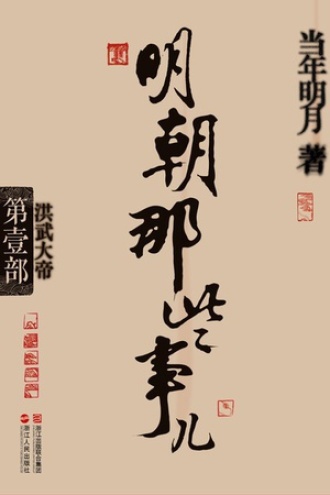 当年明月 著
明朝那些事儿
洪武大帝
第壹部
浙江人民出版社
浙江出版联合集团